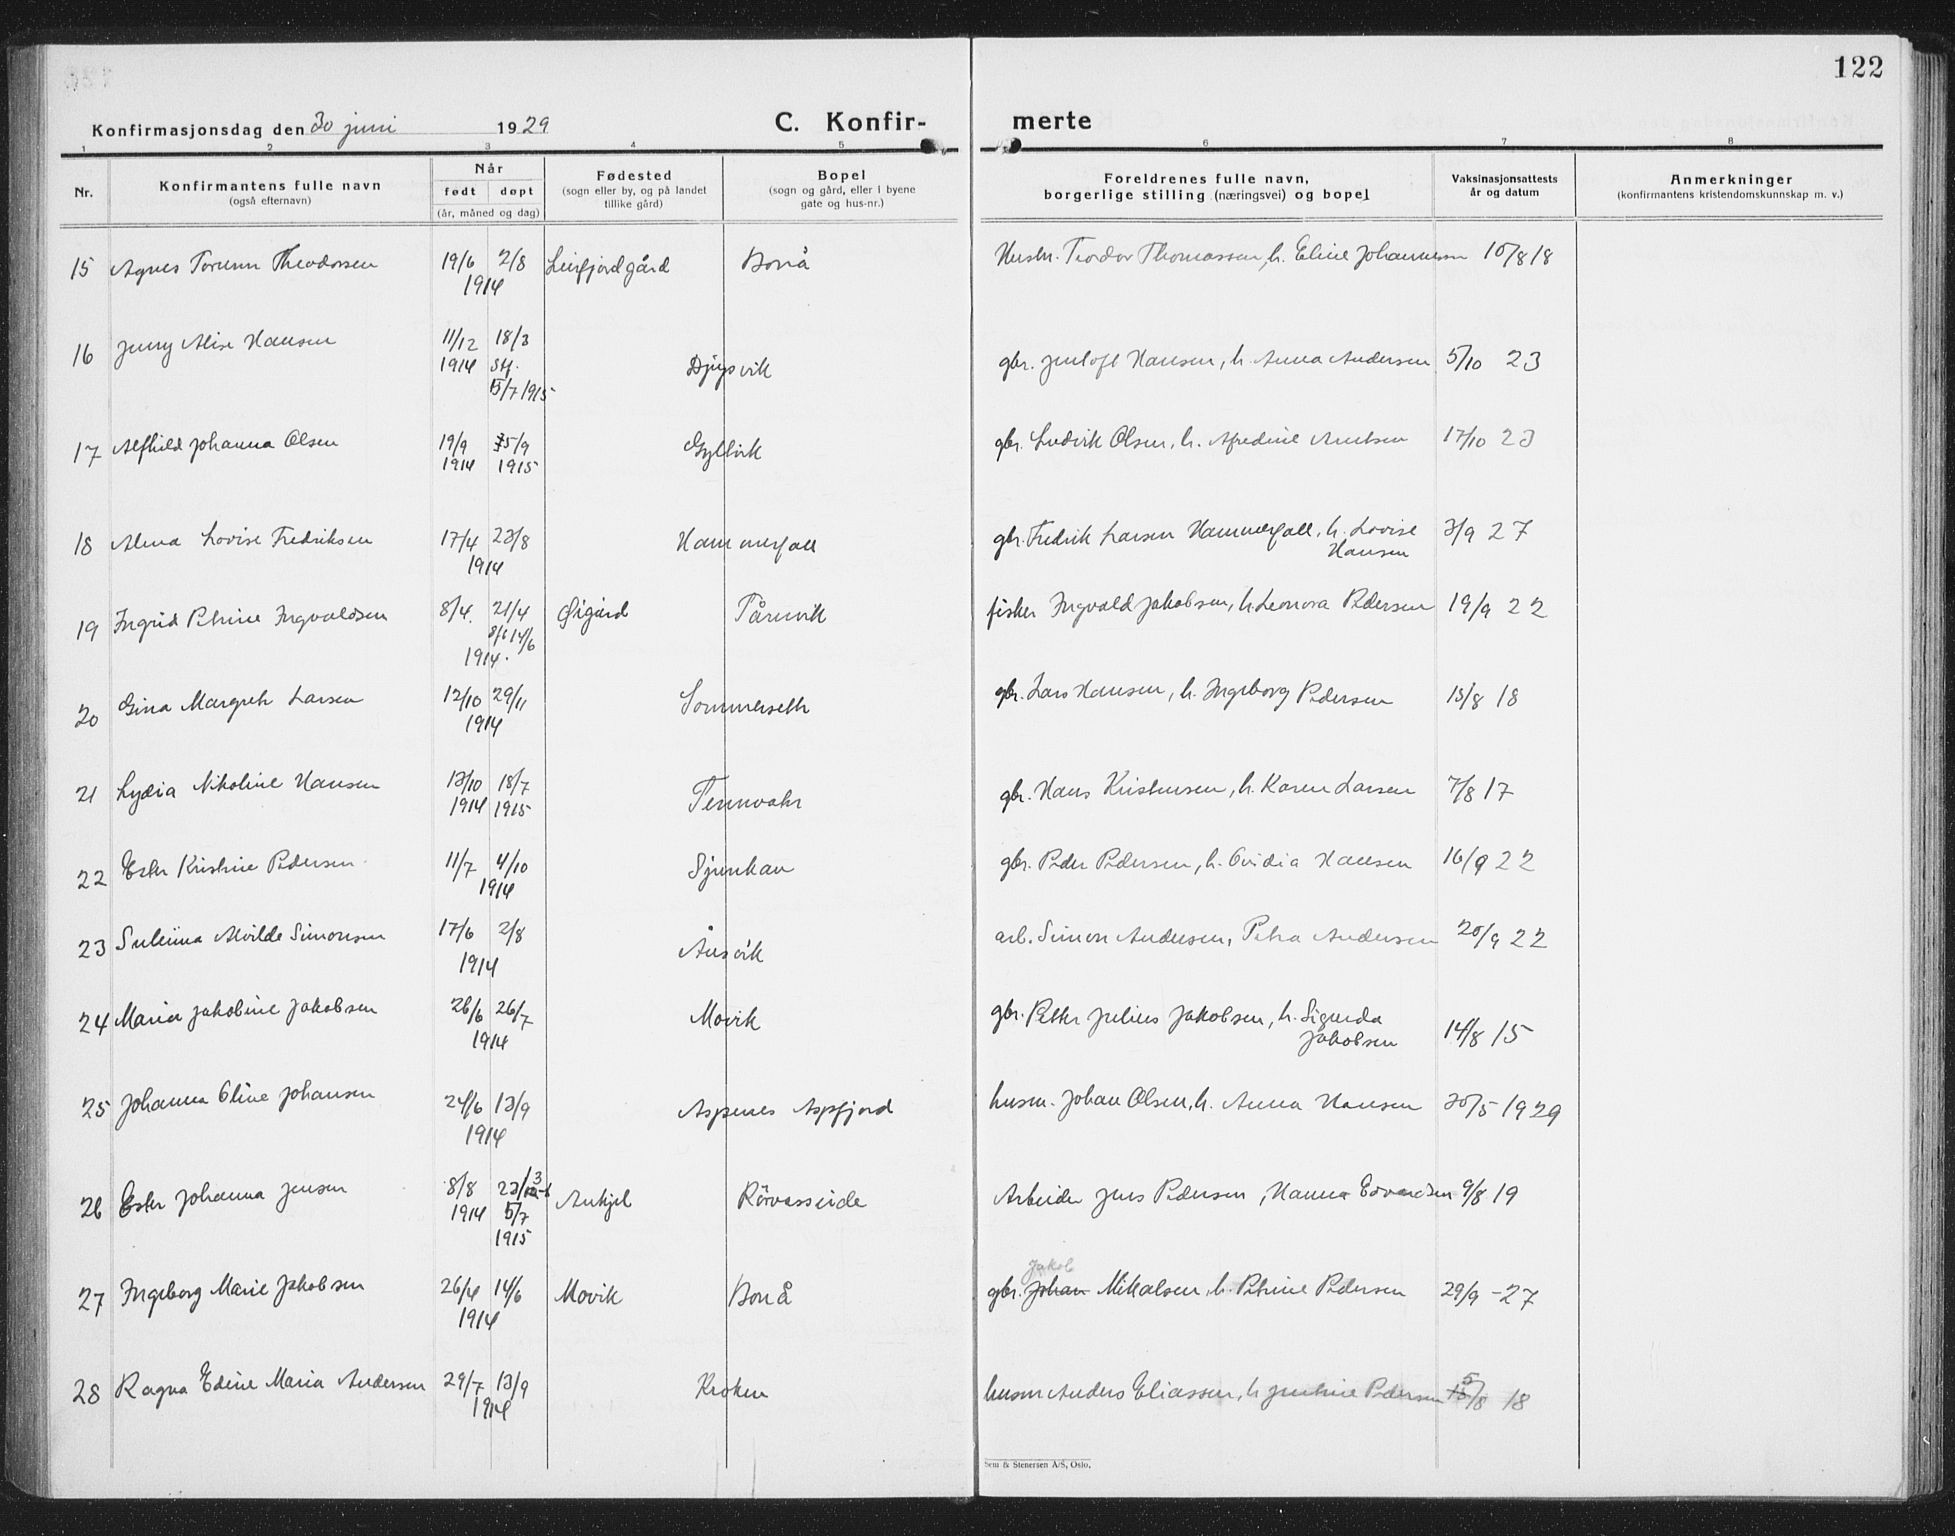 122
Konfirmasjonsdag den 30 juni 1929
C. Konfir-
merte
1 2 3 4 5 6 7 8
Nr.
Konfirmantens fulle navn
(også efternavn)
Når
født døpt
(år, måned og dag)
Fødested
(sogn eller by, og på landet
tillike gård)
Bopel
(sogn og gård, eller i byene
gate og hus-nr.)
Foreldrenes fulle navn,
borgerlige stilling (næringsvei) og bopel
Vaksinasjonsattests
år og datum
Anmerkninger
(konfirmantens kristendomskunnskap m. v.)
15 Agnes Torunn Theodorsen 19/6 2/8 Leirfjordgård Bonå Teodor Thomassen, h. Eline Johannessen 10/8 18
1914
16 Jenny Alise Hansen 11/12 18/3 Djupvik gbr. Jentoft Hansen, h. Anna Andersen 5/10 23
1914 Stf.
5/7 1915
17 Alfhild Johanna Olsen 19/9 5/9 Gyltvik gbr. Ludvik Olsen, h. Alfredine Arntsen 17/10 23
1914 1915
18 Alma Lovise Fredriksen 17/4 23/8 Hammerfall gbr. Fredrik Larsen Hammerfall, h. Lovise 3/9 27
1914 Hansen
19 Ingrid Petrine Ingvaldsen 8/4. 21/4 Øigård Tårnvik fisker Ingvald Jakobsen, h Leonora Pedersen 19/9 22
8/6 14/6
1914.
20 Gina Margreth Larsen 12/10 29/11 Sommerseth gbr. Lars Hansen, h. Ingeborg Pedersen 15/8 18
1914
21 Lydia Nikoline Hansen 13/10 18/7 Tennvatn gbr. Hans Kristensen, h. Karen Larsen 7/8 17
1914 1915
22 Ester Kristine Pedersen 11/7 4/10 Sjunkan gbr. Peder Pedersen, h. Ovidia Hansen 16/9 22
1914
23 Alvilde Simonsen 17/6 2/8 Ånsvik arb. Simon Andersen, Petra Andersen 20/9 22
1914
24 Maria Jakobine Jakobsen 26/6 26/7 Movik gbr. Petter Julius Jakobsen, h. Sigurda
1914 Jakobsen 14/8 15
25 Johanna Oline Johansen 24/6 13/9 Aspenes Aspfjord husm. Johan Olsen, h. Anna Hansen 30/5 1929
1914
26 Ester Johanna Jensen 8/8 23/3 Ankjel Rörvasseide Arbeider Jens Pedersen, Hanna Edvardsen 9/8 19
1914 5/7
1915
Jakob
27 Ingeborg Marie Jakobsen 26/4 14/6 Movik Bonå gbr. Johan Mikalsen, h. Petrine Pedersen 29/9 - 27
1914
28 Ragna Edine Maria Andersen 29/7 13/9 Kroken husm Anders Eliassen, h Jentine Pedersen 5/8 18
1914
Sem & Stenersen A/S, Oslo.